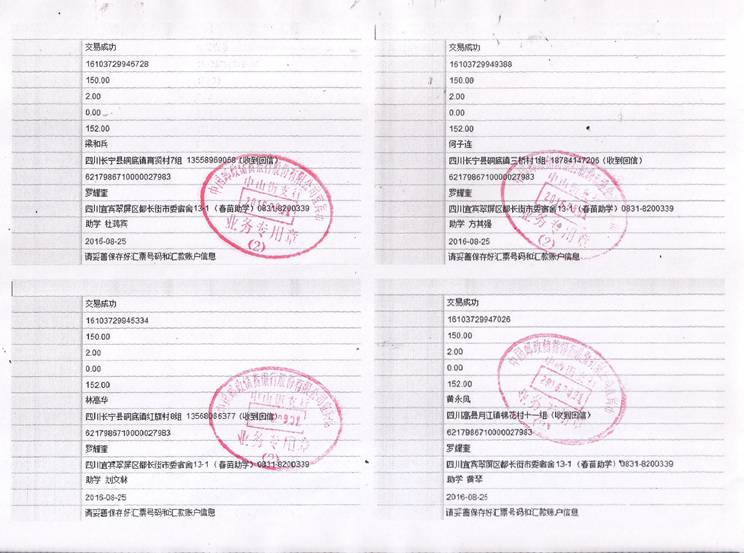 交易成功
16103729946728
150.00
2.00
0.00
152.00
梁和兵
四川长宁县硐底镇育贤村7组 13558969058 (收到回信)
6217986710000027983
罗耀奎
四川宜宾翠屏区都长街市委宿舍13-1 (春苗助学) 0831-8200339
助学 杜玮宾
2016-08-25
请妥善保存好汇票号码和汇款账户信息
中山街支行
业务专用章
(2)
交易成功
16103729949388
150.00
2.00
0.00
152.00
何子连
四川长宁县硐底镇三桥村1组 18784147206 (收到回信)
6217986710000027983
罗耀奎
四川宜宾翠屏区都长街市委宿舍13-1 (春苗助学) 0831-8200339
助学 方其强
2016-08-25
请妥善保存好汇票号码和汇款账户信息
中山街支行
业务专用章
(2)
交易成功
16103729945334
150.00
2.00
0.00
152.00
林高华
四川长宁县硐底镇红旗村8组 13568086377 (收到回信)
6217986710000027983
罗耀奎
四川宜宾翠屏区都长街市委宿舍13-1 (春苗助学) 0831-8200339
助学 刘文林
2016-08-25
请妥善保存好汇票号码和汇款账户信息
中山街支行
业务专用章
(2)
交易成功
16103729947026
150.00
2.00
0.00
152.00
黄永凤
四川高县月江镇锦花村十一组 (收到回信)
6217986710000027983
罗耀奎
四川宜宾翠屏区都长街市委宿舍13-1 (春苗助学) 0831-8200339
助学 黄琴
2016-08-25
请妥善保存好汇票号码和汇款账户信息
中山街支行
业务专用章
(2)